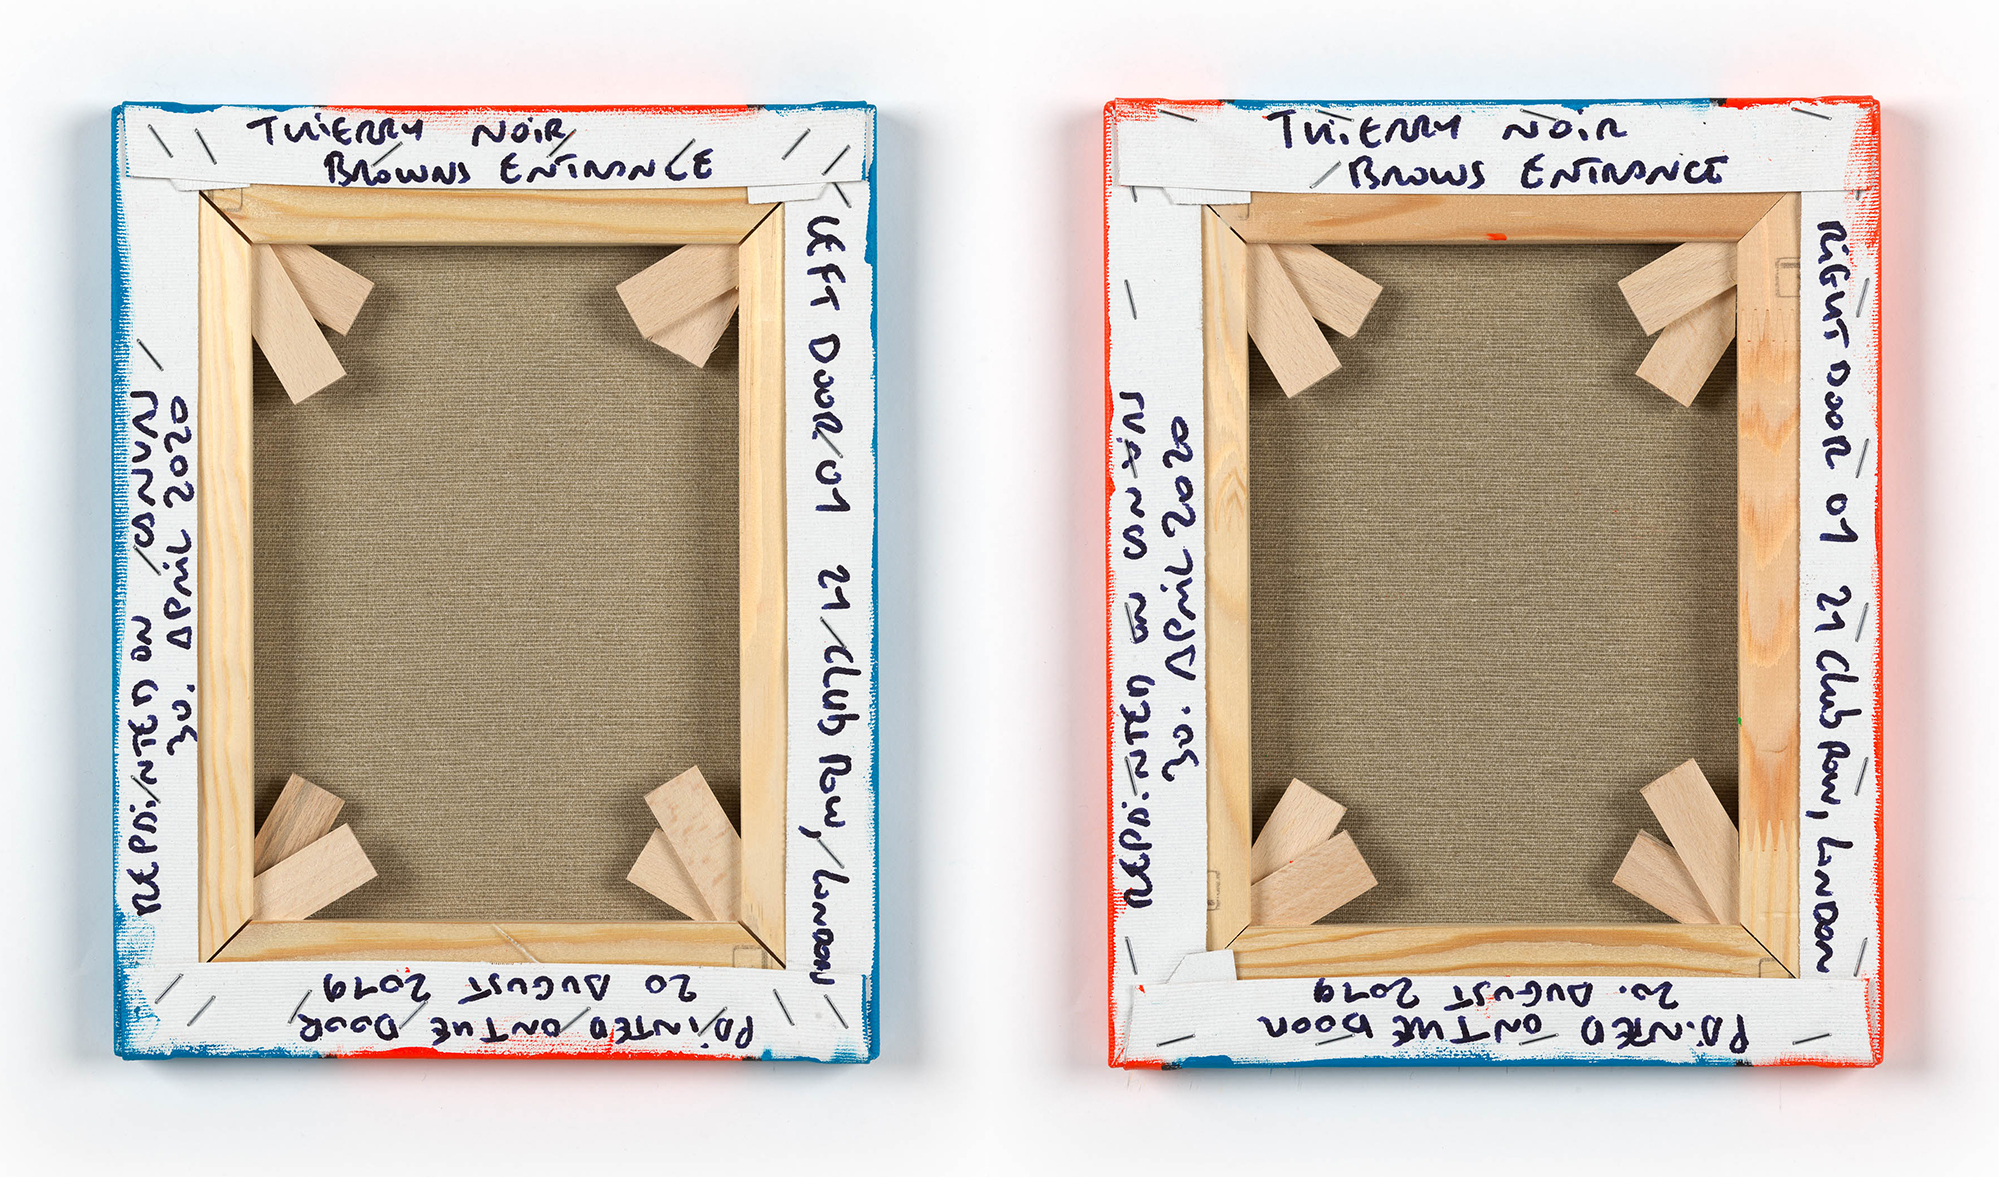 THIERRY NOIR
BROWNS ENTRANCE
LEFT DOOR 01 21 Club Row, LONDON
PAINTED ON THE DOOR
20 AUGUST 2019
REPAINTED ON CANVAS
30. APRIL 2020
THIERRY NOIR
BROWS ENTRANCE
RIGHT DOOR 01 21 Club Row, LONDON
PAINTED ON THE DOOR
20. AUGUST 2019
REPAINTED ON CANVAS
30. APRIL 2020